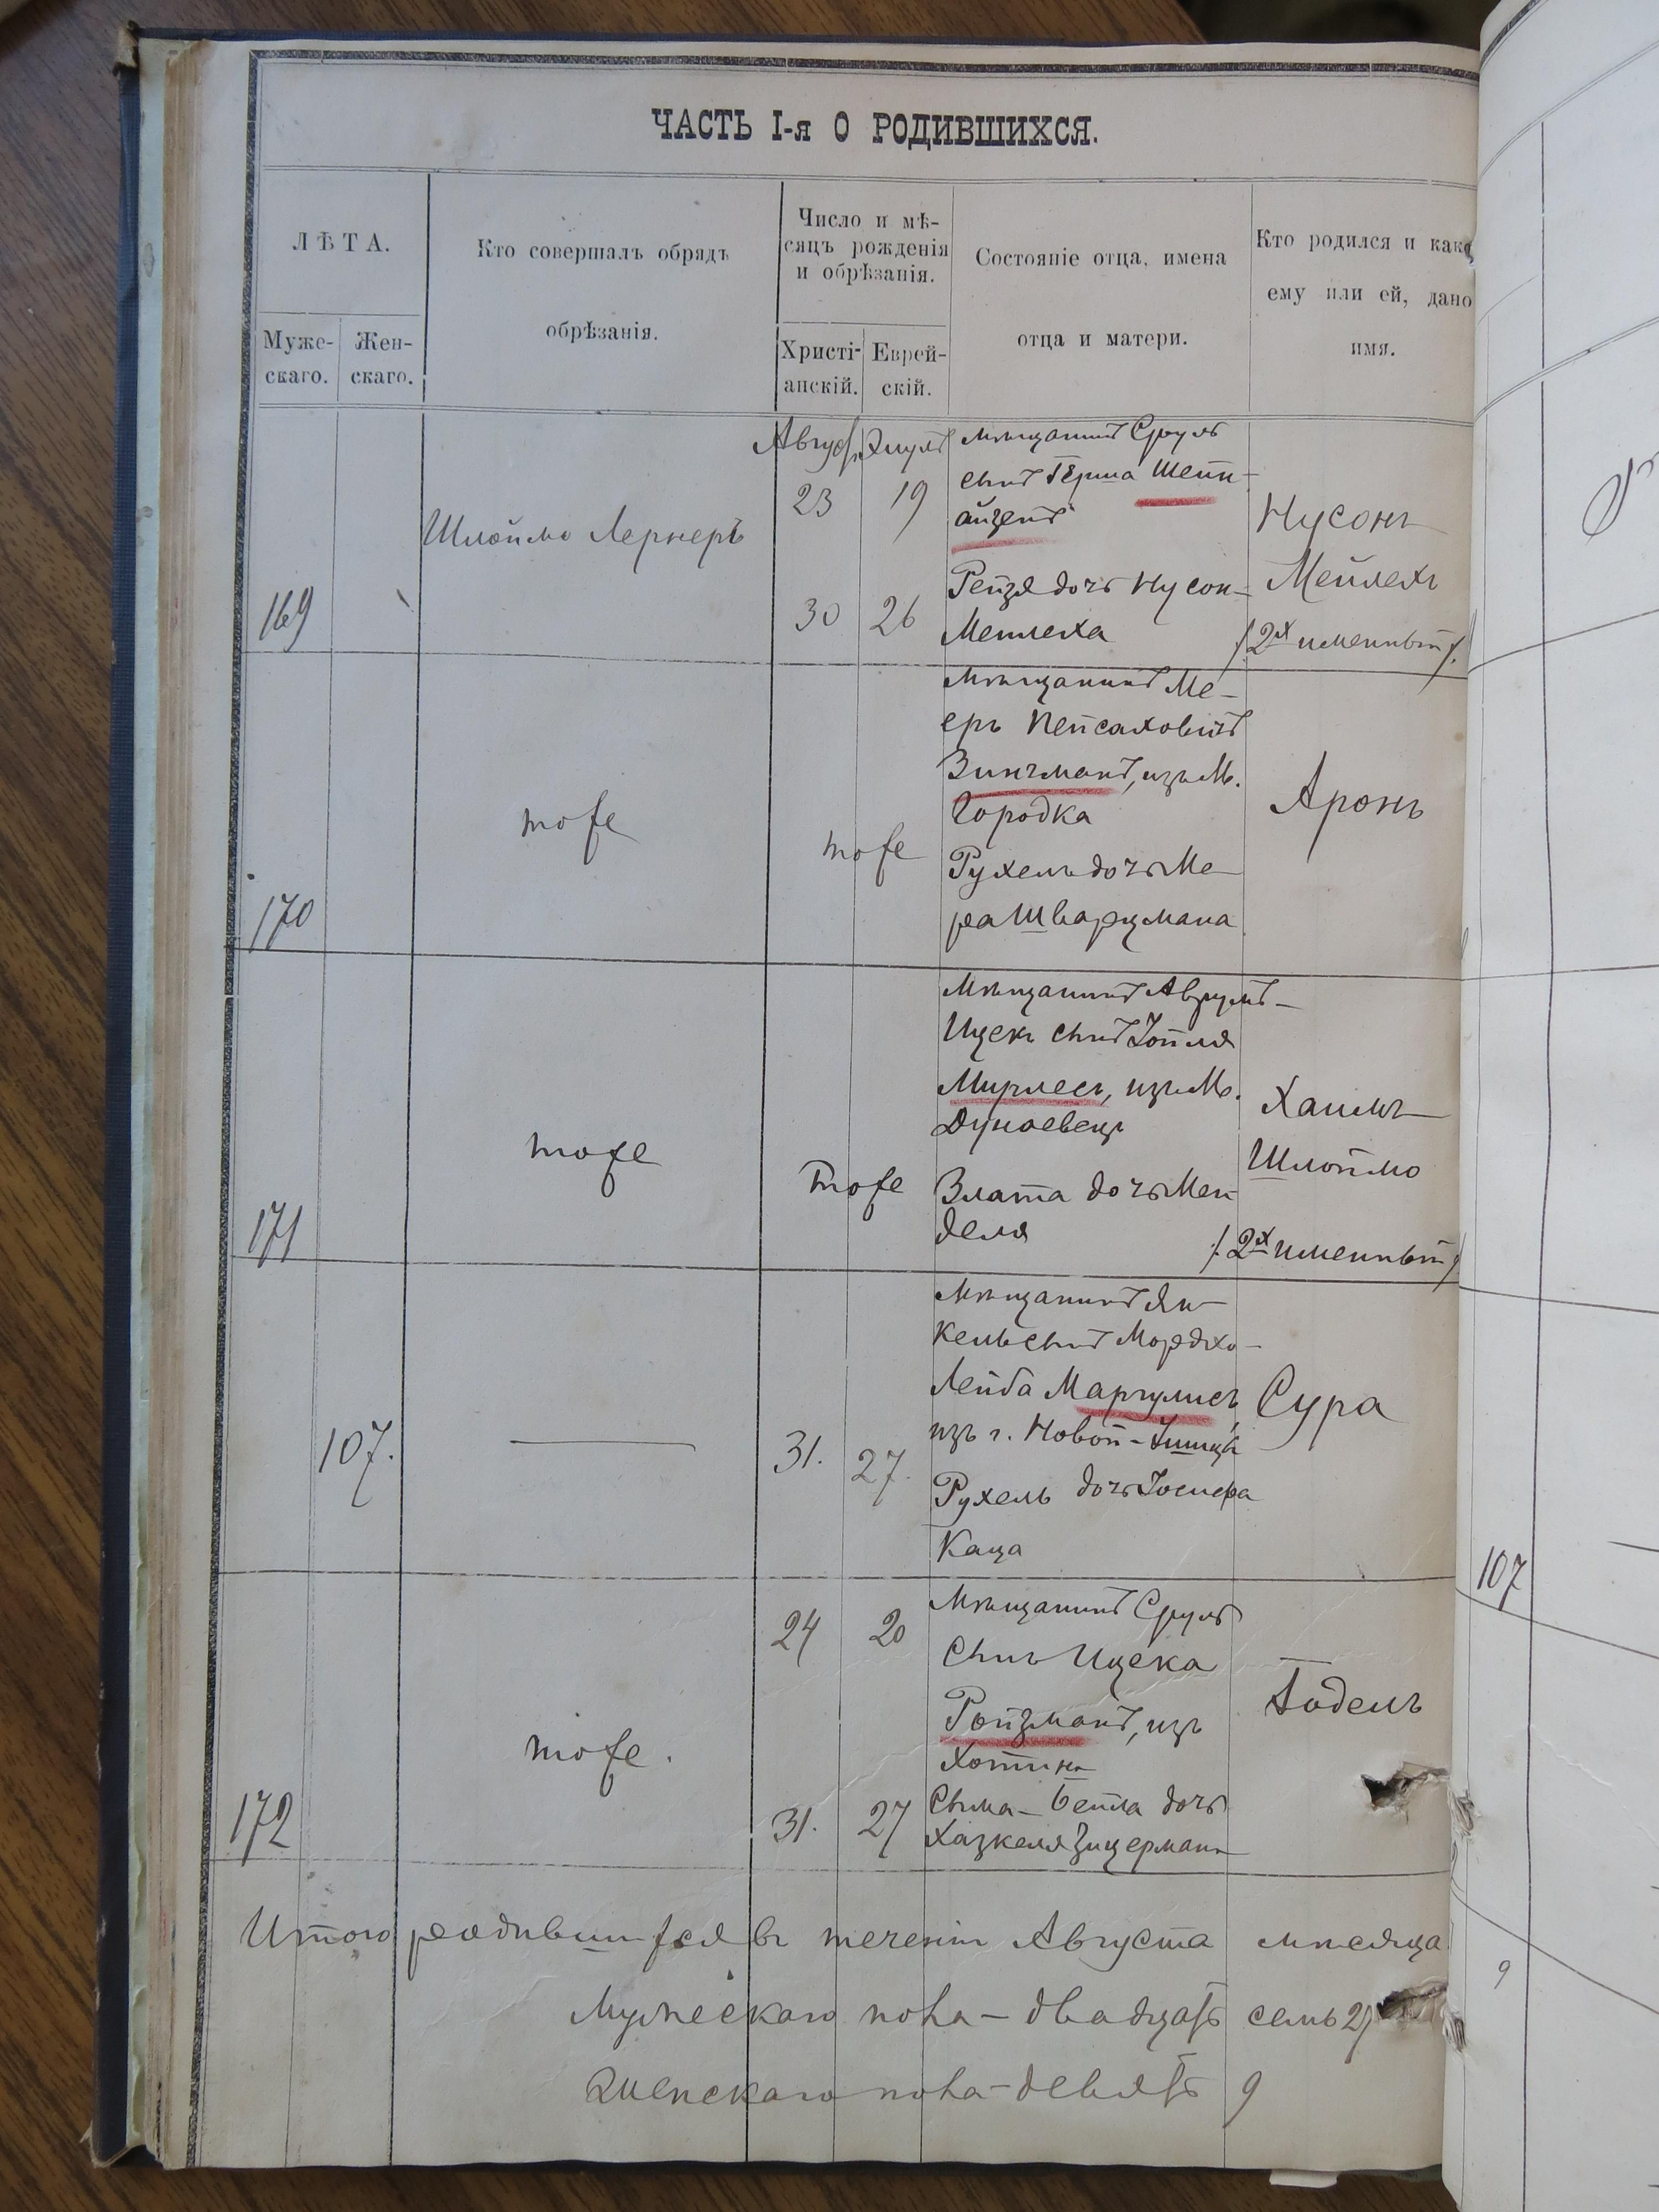 ЧАСТЬ I-я О РОДИВШИХСЯ.
ЛѢТА.
Муже-
скаго.
Жен-
скаго.
Кто совершалъ обрядъ
обрѣзанія.
Число и мѣ-
сяцъ рожденія
и обрѣзанія.
Христі-
анскій.
Еврей-
скій.
Состояніе отца, имена
отца и матери.
Кто родился и како
ему или ей, дано
имя.
169
Шлоймо Лернеръ
Август.
23
30
Элулъ
19
26
Мѣщанинъ Сруль
сынъ Герша Штейн-
айзенъ
Рейзя дочь Нусон-
Мейлеха
Нусонъ
Мейлехъ
/2хъ именный/
170
тоже
тоже
Мѣщанинъ Ме-
еръ Пейсаховичъ
Зингманъ, изъ М.
Городка
Рухель дочь Ме-
ера Шварцмана
Аронъ
171
тоже
тоже
Мѣщанинъ Аврумъ-
Ицекъ сынъ Іойля
Мирлесъ, изъ М.
Дунаевецъ
Злата дочь Мен-
деля
Хаимъ
Шлоймо
/2хъ именный/
107.
31.
27.
Мѣщанинъ Ян-
кель сынъ Мордхо-
Лейба Маргулисъ,
изъ г. Новой-Ушицы
Рухель дочь Іосифа
Каца
Сура
172
тоже.
24
31.
20
27
Мѣщанинъ Сруль
Сынъ Ицека
Ройзманъ, изъ
Хотина
Сыма-Бейла дочь
Хазкеля Зицерманъ
Годель
Итого родившихся въ теченіи Августа мѣсяца
Мужескаго пола - двадцать семь 27
Женскаго пола - девять 9
107
9